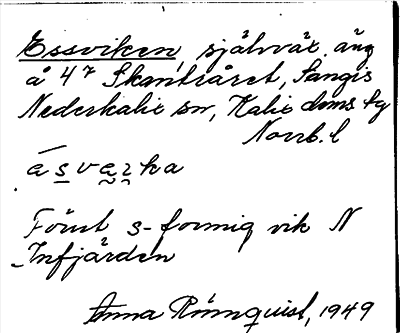 Essviken, självväx. äng
å 4⁷ Skamträret, Sangis
Nederkalix sn, Kalix doms. tg
Norrb. l
ásvarka
Förut s-formig vik N
Infjärden
Anna Rönnquist, 1949